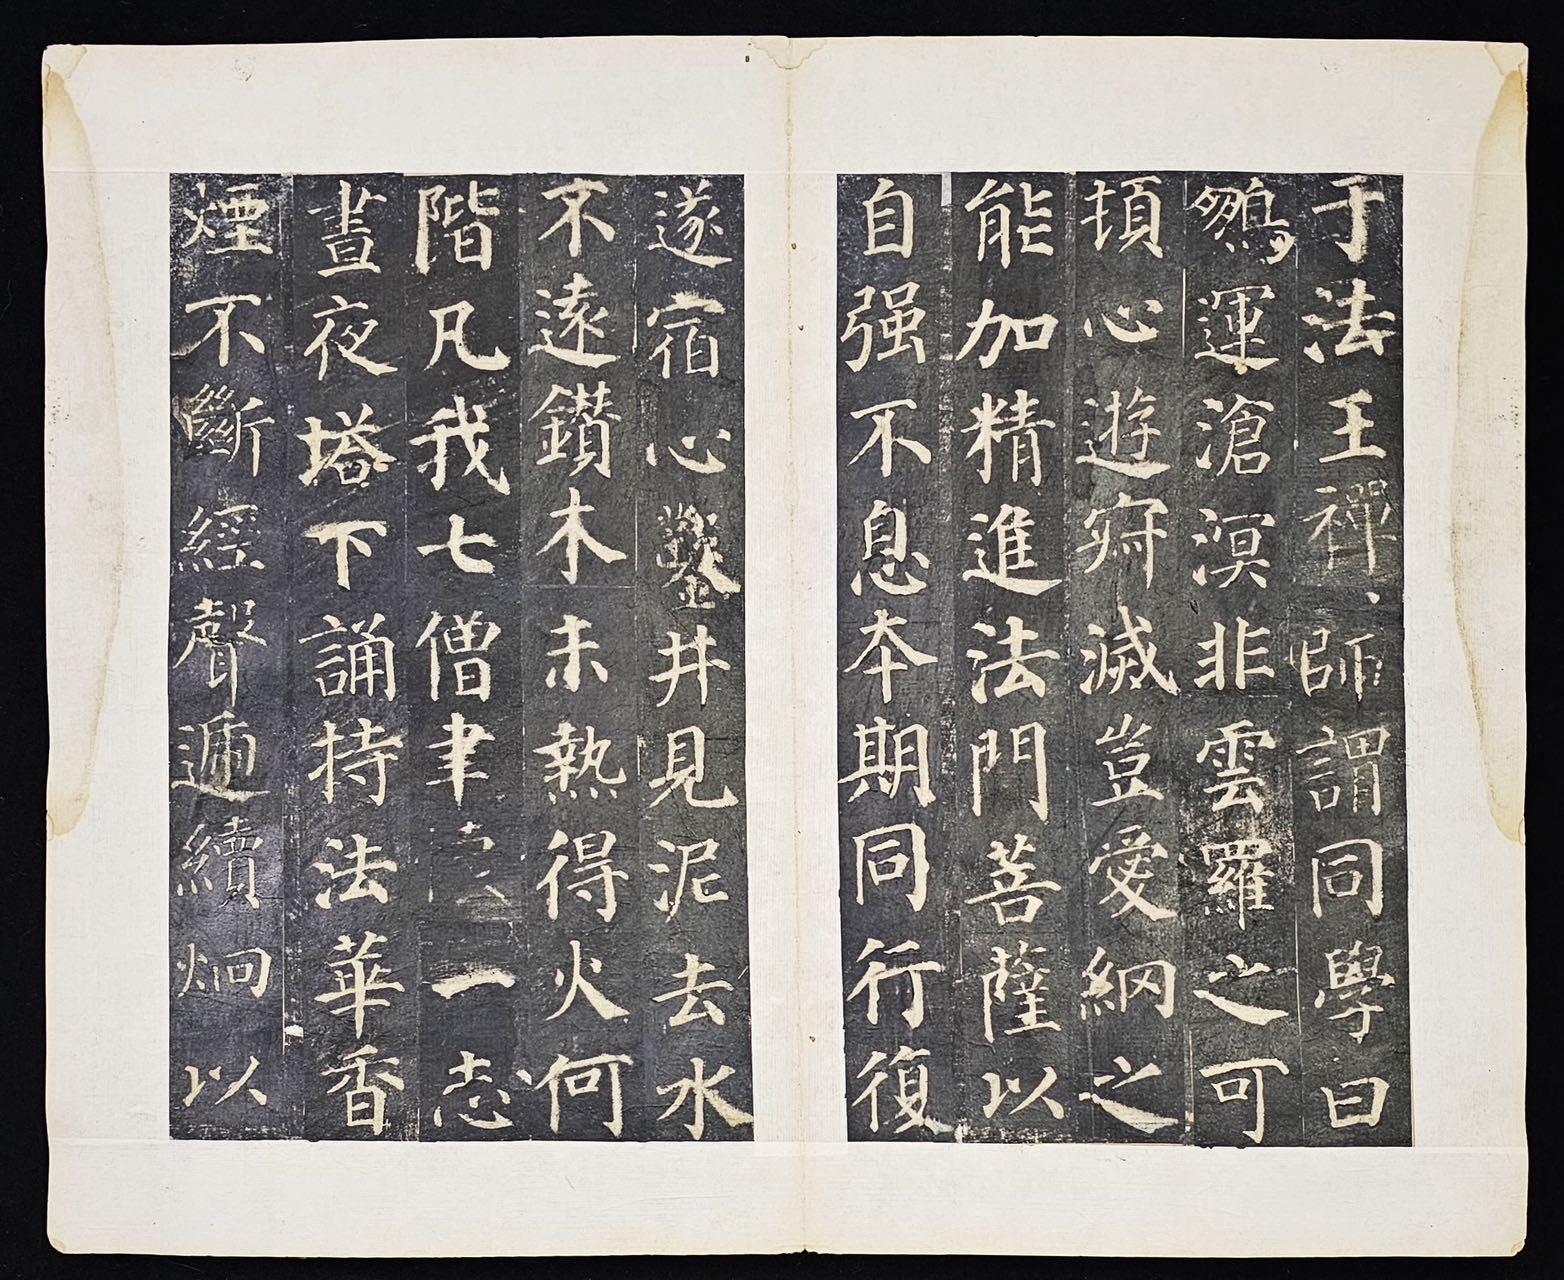 于法王禪師謂同學曰
鵬運滄溟非雲羅之可
頓心遊寂滅豈愛網之
能加精進法門菩薩以
自强不息本期同行復
遂宿心鑿井見泥去水
不遠鑽木未熱得火何
階凡我七僧聿一志
晝夜塔下誦持法華香
煙不斷經聲遞續炯以